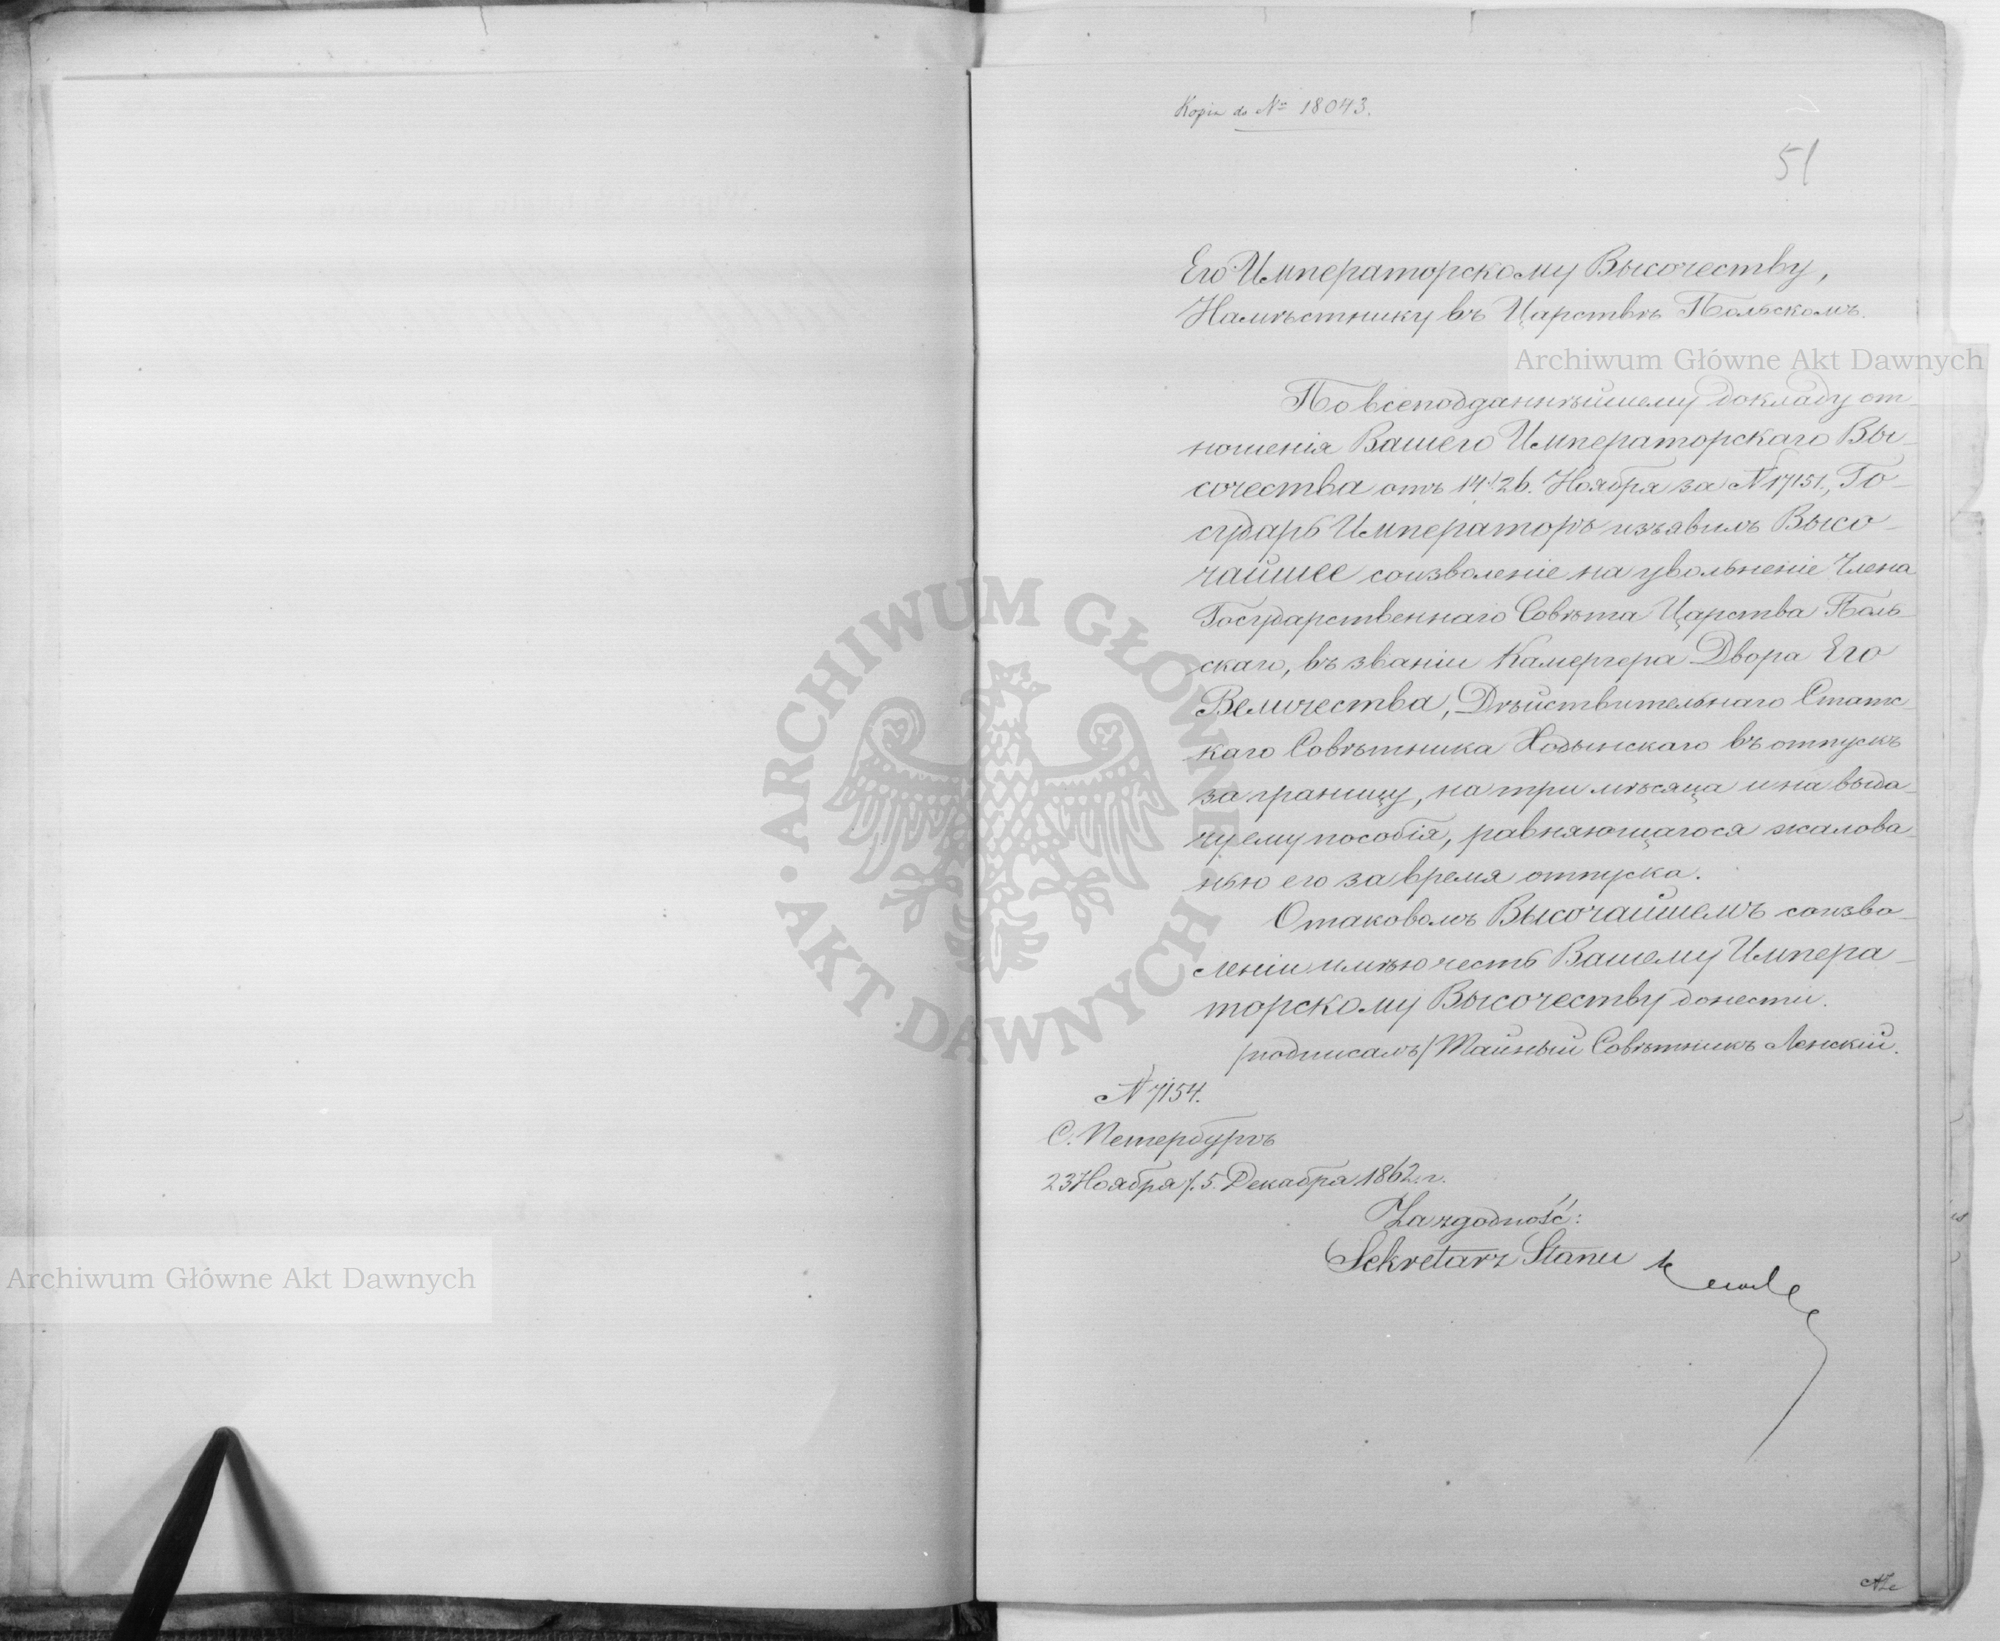 Kopia do № 18043.
51
Его Императорскому Высочеству,
Намѣстнику въ Царствѣ Польскомъ.
Archiwum Główne Akt Dawnych
По всеподданнѣйшему докладу от-
ношенія Вашего Императорскаго Вы-
сочества отъ 14/26. Ноября за № 17151., Го-
сударь Императоръ изъявилъ Высо-
чайшее соизволеніе на увольненіе Члена
Государственнаго Совѣта Царства Поль-
скаго, въ званіи Камергера Двора Его
Величества, Дѣйствительнаго Статс-
каго Совѣтника Ходынскаго въ отпускъ
за границу, на три мѣсяца и на выда-
чу ему пособія, равняющагося жалова-
нью его за время отпуска.
О таковомъ Высочайшемъ соизво-
леніи имѣю честь Вашему Импера-
торскому Высочеству донести.
/подписалъ/ Тайный Совѣтникъ Ленскій.
№ 7154.
С. Петербургъ
23 Ноября /. 5. Декабря 1862. г.
Za zgodność:
Sekretarz Stanu
Archiwum Główne Akt Dawnych
ARCHIWUM GŁÓWNE AKT DAWNYCH